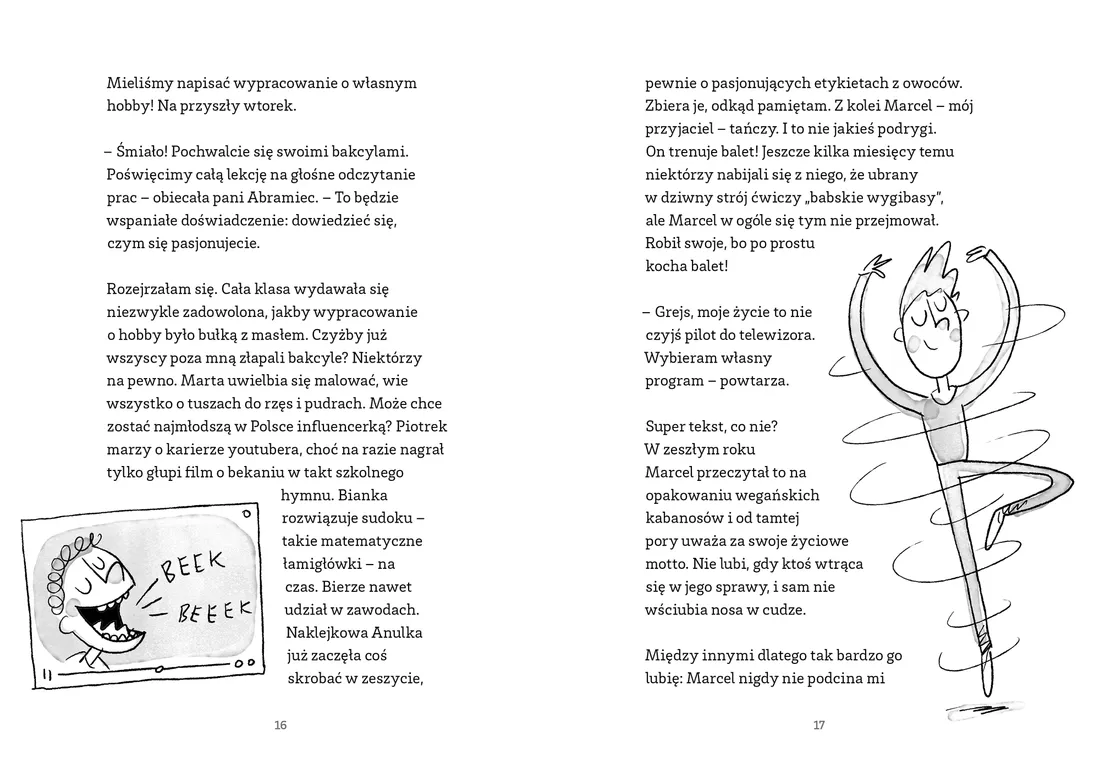 Mieliśmy napisać wypracowanie o własnym
hobby! Na przyszły wtorek.
– Śmiało! Pochwalcie się swoimi bakcylami.
Poświęcimy całą lekcję na głośne odczytanie
prac – obiecała pani Abramiec. – To będzie
wspaniałe doświadczenie: dowiedzieć się,
czym się pasjonujecie.
Rozejrzałam się. Cała klasa wydawała się
niezwykle zadowolona, jakby wypracowanie
o hobby było bułką z masłem. Czyżby już
wszyscy poza mną złapali bakcyle? Niektórzy
na pewno. Marta uwielbia się malować, wie
wszystko o tuszach do rzęs i pudrach. Może chce
zostać najmłodszą w Polsce influencerką? Piotrek
marzy o karierze youtubera, choć na razie nagrał
tylko głupi film o bekaniu w takt szkolnego
hymnu. Bianka
rozwiązuje sudoku –
takie matematyczne
łamigłówki – na
czas. Bierze nawet
udział w zawodach.
Naklejkowa Anulka
już zaczęła coś
skrobać w zeszycie,
BEEK
BEEEK
16
pewnie o pasjonujących etykietach z owoców.
Zbiera je, odkąd pamiętam. Z kolei Marcel – mój
przyjaciel – tańczy. I to nie jakieś podrygi.
On trenuje balet! Jeszcze kilka miesięcy temu
niektórzy nabijali się z niego, że ubrany
w dziwny strój ćwiczy „babskie wygibasy”,
ale Marcel w ogóle się tym nie przejmował.
Robił swoje, bo po prostu
kocha balet!
– Grejs, moje życie to nie
czyjś pilot do telewizora.
Wybieram własny
program – powtarza.
Super tekst, co nie?
W zeszłym roku
Marcel przeczytał to na
opakowaniu wegańskich
kabanosów i od tamtej
pory uważa za swoje życiowe
motto. Nie lubi, gdy ktoś wtrąca
się w jego sprawy, i sam nie
wściubia nosa w cudze.
Między innymi dlatego tak bardzo go
lubię: Marcel nigdy nie podcina mi
17